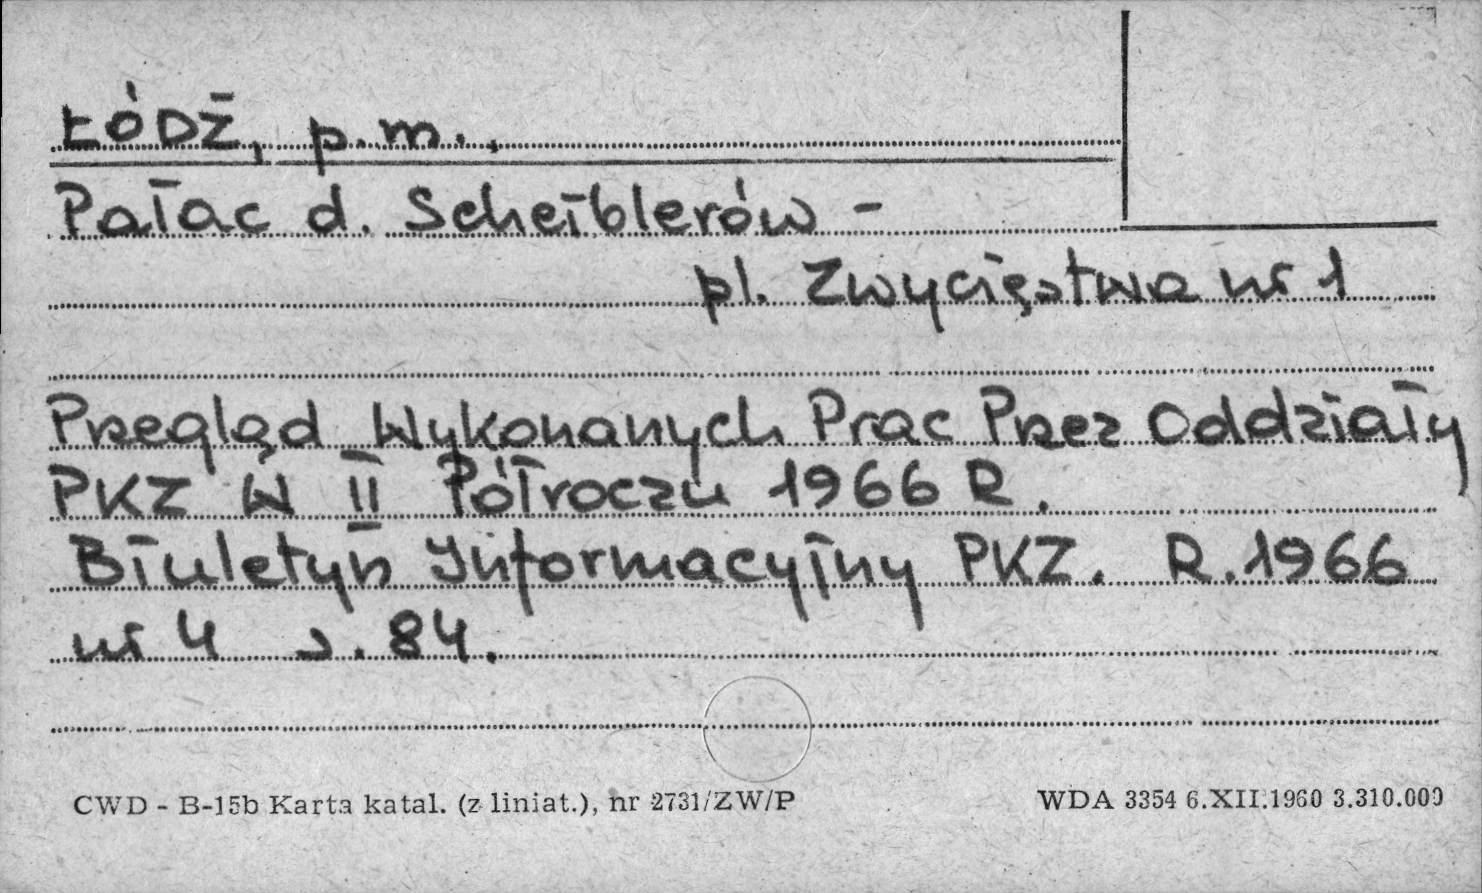 ŁÓDŹ, p.m.,
Pałac d. Scheiblerów -
pl. Zwycięstwa nr 1
Przegląd Wykonanych Prac Przez Oddziały
PKZ W II Półroczu 1966 R.
Biuletyn Informacyjny PKZ. R.1966
nr 4 s. 84.
CWD - B-15b Karta katal. (z liniat.), nr 2731/ZW/P
WDA 3354 6.XII.1960 3.310.000